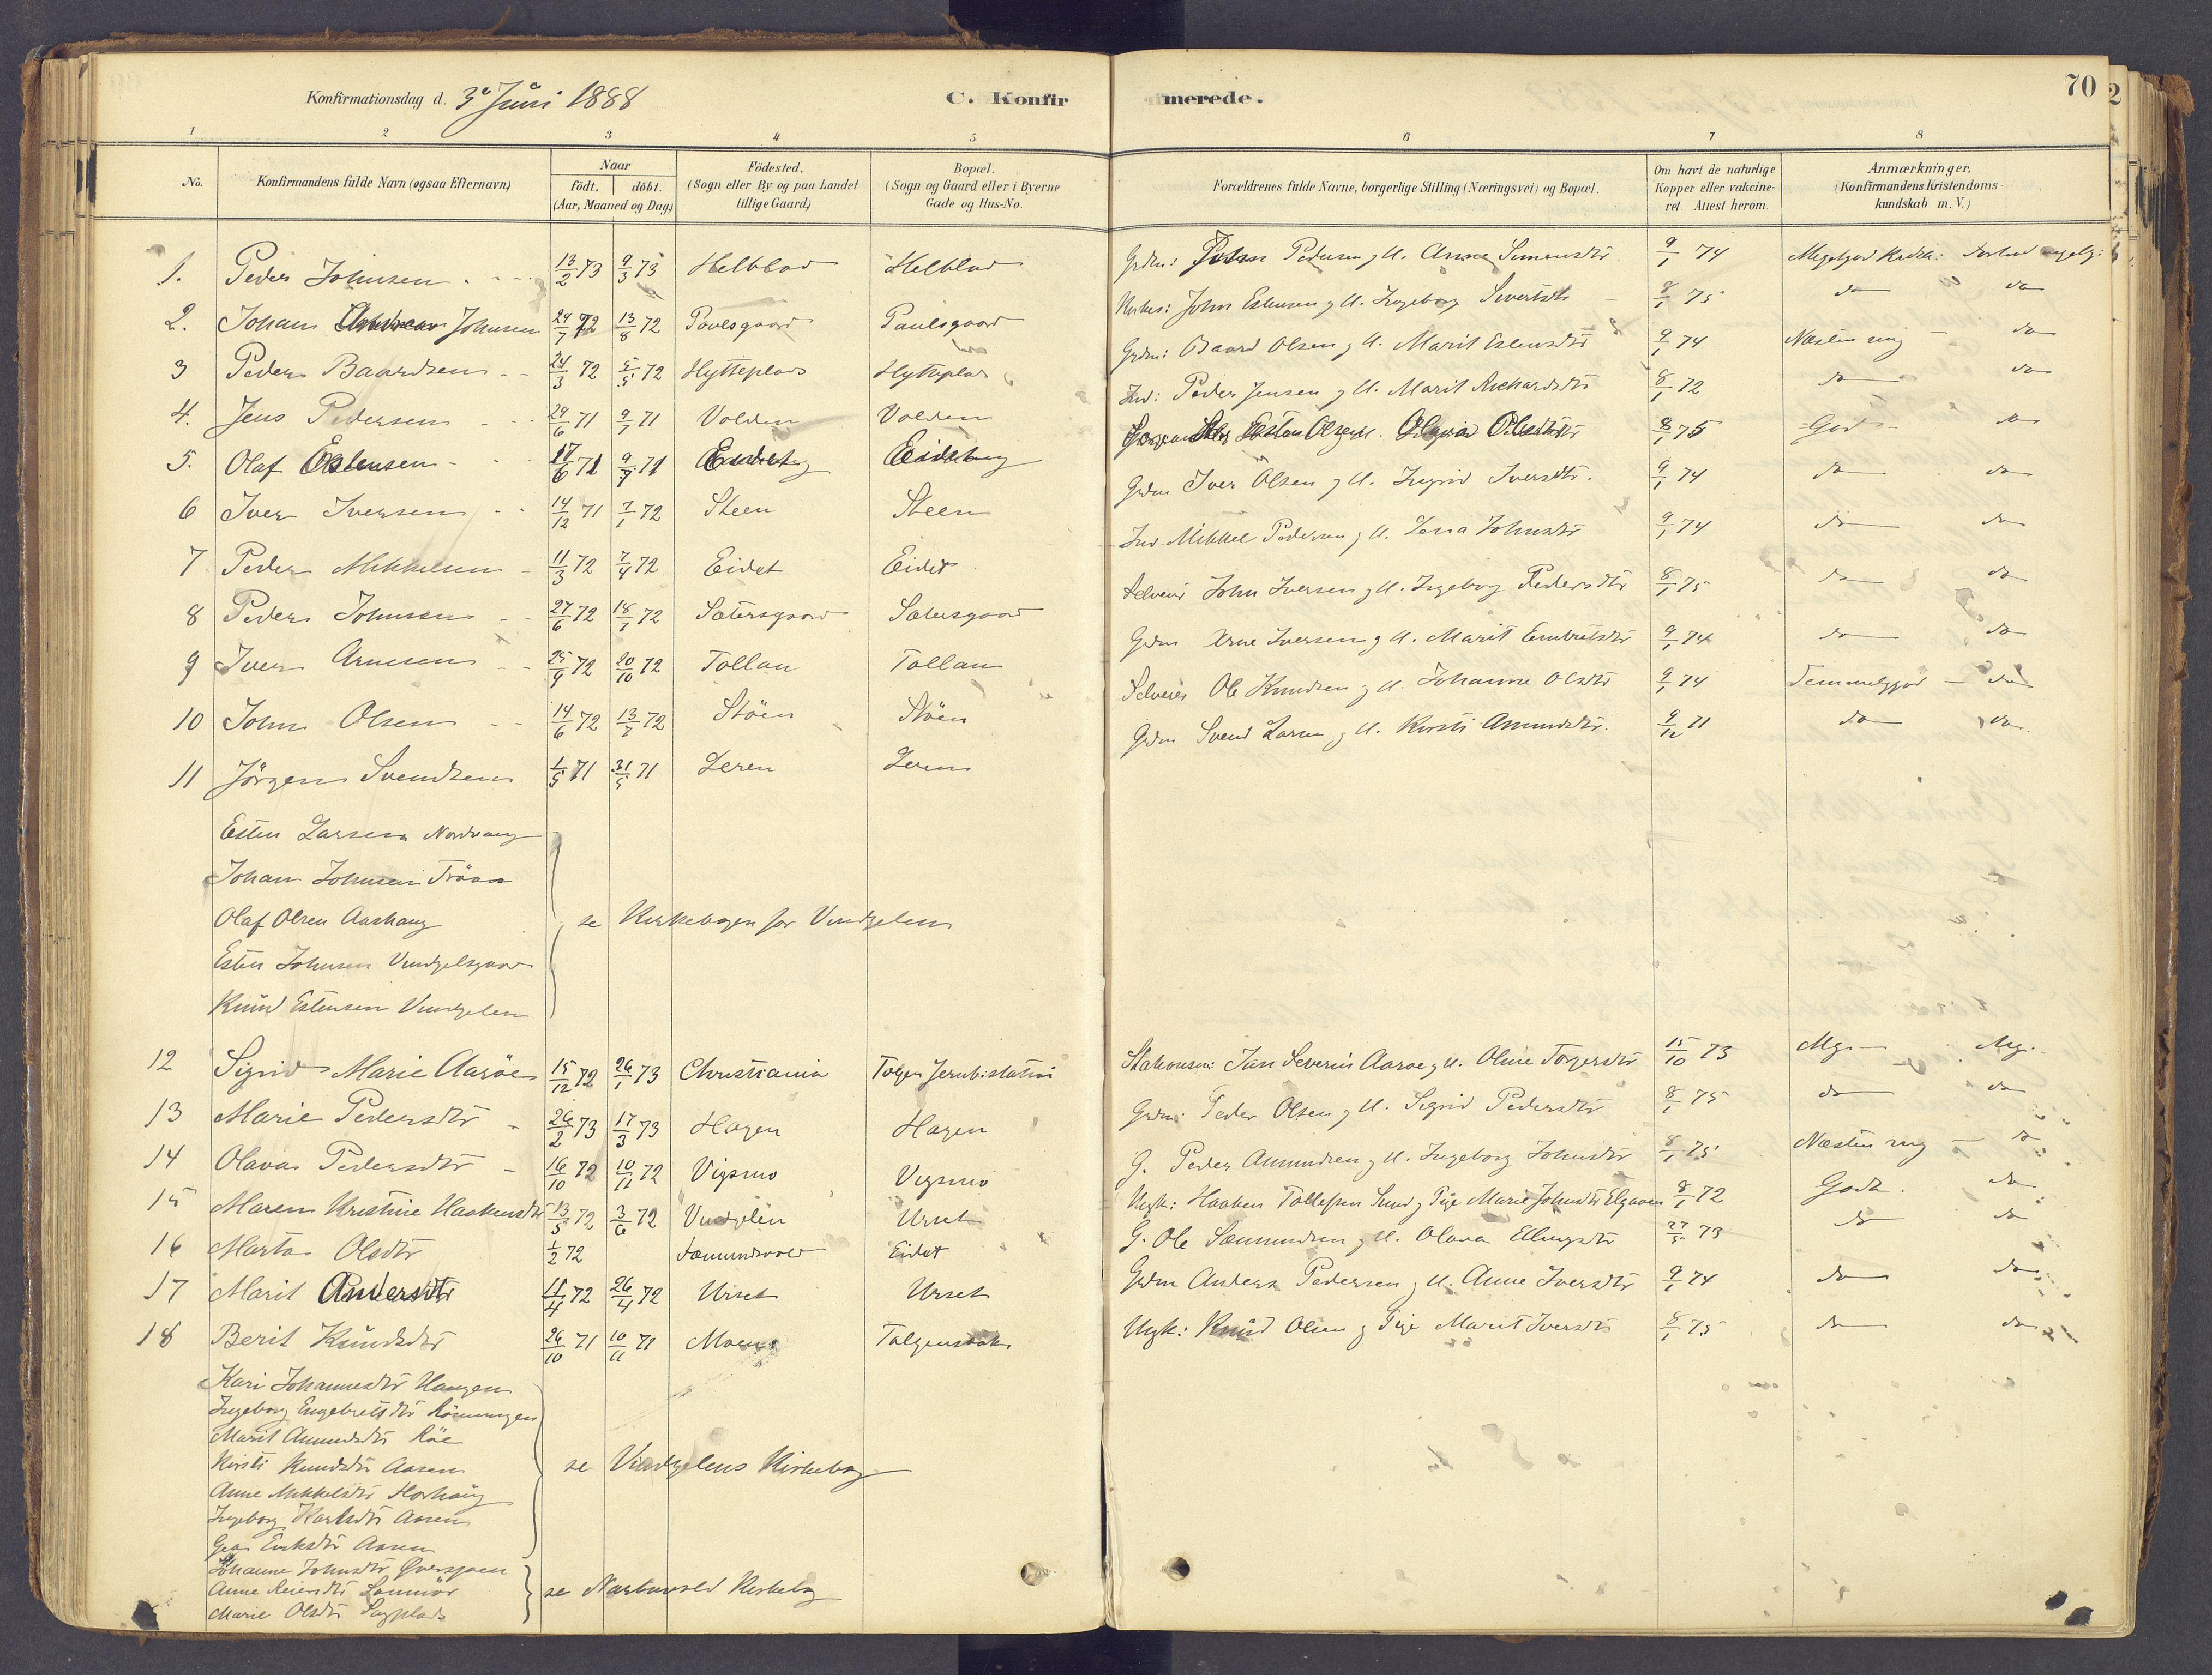 Konfirmationsdag d. 3e Juni 1888 C. Konfirmerede. 70
1 2 3 4 5 6 7 8
No. Konfirmandens fulde Navn (ogsaa Efternavn) Naar født. døbt. (Aar, Maaned og Dag) Födested. (Sogn eller By og paa Landet tillige Gaard) Bopæl. (Sogn og Gaard eller i Byerne Gade og Hus-No. Forældrenes fulde Navne, borgerlige Stilling (Næringsvei) og Bopæl. Om havt de naturlige Kopper eller vakcineret Attest herom. Anmærkninger. (Konfirmandens Kristendomskundskab m. V.)
1. Peder Johnsen 13/2 73 9/3 73 Helblad Helblad Grdm: John Pedersen g H. Anne Simensdtr 9/1 74
2. Johan Johnsen 24/7 72 13/8 72 Poulsgaard Paulsgaard Kirkes: John Estensen g H. Ingeborg Sivertsdtr 8/1 75 do do
3 Peder Baardsen 24/3 72 5/5 72 Hytteplads Hytteplads Grdm: Baard Olsen g H. Marit Estensdtr 9/1 74 Næsten mg do
4. Jens Pedersen 29/6 71 9/7 71 Volden Volden Ind: Peder Jensen g H. Marit Richardsdtr 8/1 72 do do
5. Olaf Estensen 17/6 71 9/7 71 Eidsberg Esten Olsen g H. Olava Olsdtr 8/1 75 God do
6 Iver Iversen 14/12 71 7/1 72 Steen Steen Grdm Iver Olsen g H. Ingrid Iversdtr. 9/1 74 do do
7 Peder Mikkelsen 11/3 72 7/4 72 Eidet Eidet Ind Mikkel Pedersen g H. Lena Johnsdtr 9/1 74 do do
8 Peder Johnsen 27/6 72 18/7 72 Sætersgaard Sætersgaard Selveier John Iversen g H. Ingeborg Pedersdtr 8/1 75 do do
9 Iver Arnesen 25/9 72 20/10 72 Tollan Tollan Grdm Arne Iversen g H. Marit Embretsdtr 9/1 74 do do
10 John Olsen 14/6 72 13/7 72 Støen Støen Selveier Ole Knudsen g H. Johanne Olsdtr 9/1 74 Temmelig god do
11 Jörgen Svendsen 1/5 71 31/5 71 Leren Leren Grdm Svend Larsen g H. Kirsti Amundsdtr. 9/12 71 do do
Esten Larsen Nordvang
Johan Johnsen Trøan
Olaf Olsen Aashaug se Kirkebogen for Vingelen
Esten Johnsen Vingelsgaard
Knud Estensen Vingelen
12 Sigrid Marie Aarøe 15/12 72 26/1 73 Christiania Tolgen Jernb: station Stationsm: Jan Severin Aarøe g H. Oline Torgersdtr 15/10 73 Mg. Mg.
13 Marie Pedersdtr 26/2 73 17/3 73 Hagen Hagen Grdm: Peder Olsen g H. Sigrid Pedersdtr 8/1 75 do do
14 Olava Pedersdtr 16/10 72 10/11 72 Vigsmo Vigsmo G. Peder Amundsen g H. Ingeborg Johnsdtr 8/1 75 Næsten mg do
15 Maren Kristine Haakensdtr 13/5 72 3/6 72 Vingelen Urset Ungk: Haaken Tollefsen Lund g Pige Marie Johnsdtr Elgaaen 8/1 72 Godt. do
16 Marta Olsdtr 1/2 72 Fæmundsvold Eidet G. Ole Sæmundsen g H. Olava Ellingsdtr 27/5 73 do do
17 Marit Andersdtr 11/4 72 26/4 72 Urset Urset Grdm Anders Pedersen g H. Anne Iversdtr 9/1 74 do do
18 Berit Knudsdtr 26/10 71 10/11 71 Moen Tolgensbak Ungk: Knud Olsen g Pige Marit Iversdtr 8/1 75 do do
Kari Johannesdtr Haugen
Ingeborg Engebretsdtr Rönningen
Marit Amundsdtr Röe
Kirsti Knudsdtr Aasen se Vingelens Kirkebog
Anne Mikkelsdtr Horhaug
Ingeborg Aasen
Eriksdtr Aasen
Johanne Johnsdtr Øversjøen
Anne Reiersdtr se Narbuvold Kirkebog
Marie Olsdtr Sagplads